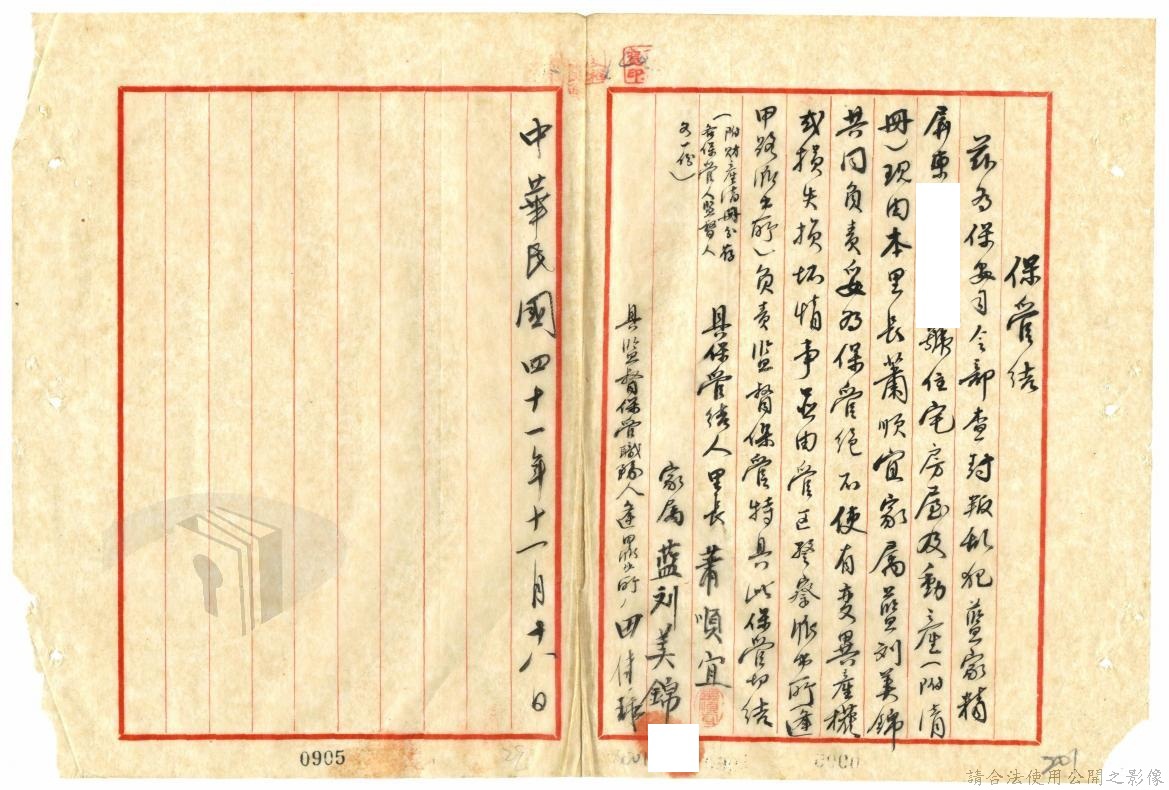 保管結
茲為保安司令部查封叛亂犯藍家精
屏東
號住宅房屋及動產(附清
冊)現由本里長蕭順宜家屬藍刘美錦
共同負責妥為保管絕不使有變異產權
或損失損坏情事並由管區警察派出所逢
甲路派出所)負責監督保管特具此保管切結
(附財產清冊分存
各保管人監督人
各一份)
具保管結人里長 蕭順宜
家屬 藍刘美錦
具監督保管職隔人逢甲路出所
中華民國四十一年十一月十八日
0905
201
請合法使用公開之影像